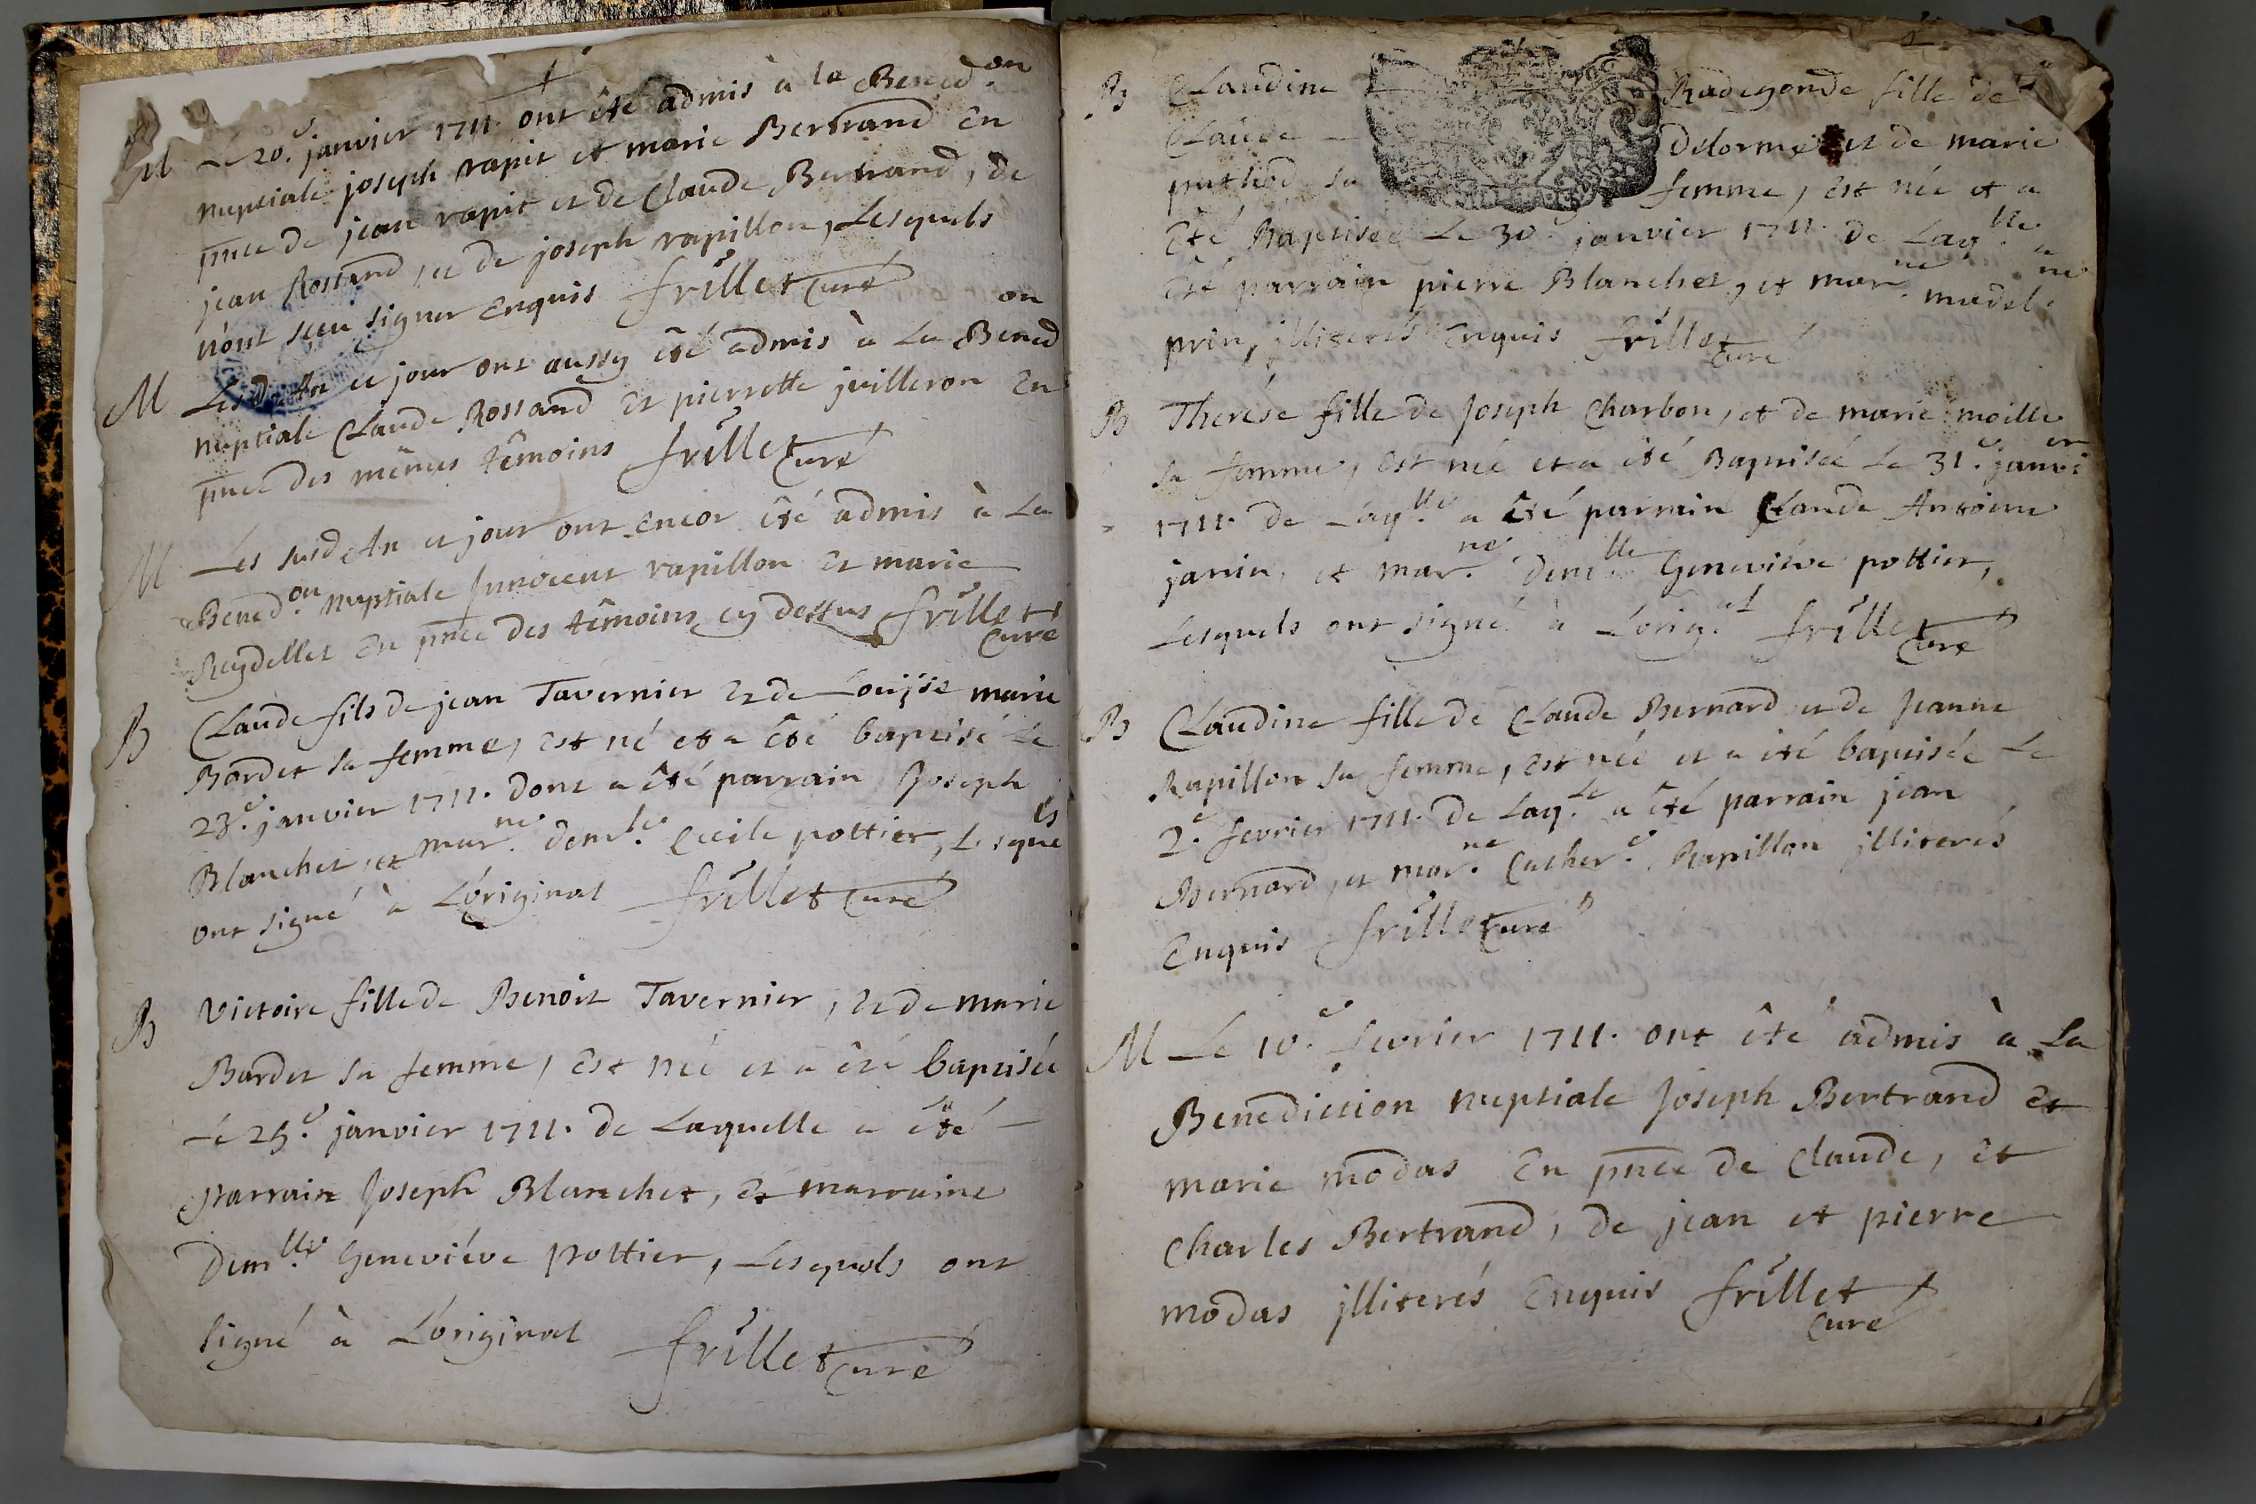 M Le 20.e janvier 1711. ont été admis à la Bened.on
nuptiale joseph rapit et marie Bertrand En
pnce de jean rapit et de Claude Bertrand, de
jean Rostand, et de joseph rapillon, Lesquels
n'ont sceu signer Enquis frillet Curé
M Lesd. An et jour ont aussy été admis à La Bened.on
nuptiale Claude Rostand Et pierrette juilleron En
pnce des mêmes têmoins frillet Curé
M Les susd An et jour ont encor été admis à La
Bened.on nuptiale Innocent rapillon Et marie
Reydellet En pnce des têmoins cy dessus frillet
Curé
B Claude fils de jean Tavernier Et de Louïse marie
Bardet sa femme, Est né et a êté baptisé Le
23.e janvier 1711. dont a êté parrain Joseph
Blanchet, et mar.ne dem.le Cecile pottier, Lesquels
ont signé à L'original frillet Curé
B Victoire fille de Benoit Tavernier, Et de marie
Bardet sa femme, Est née et a êté baptisée
Le 25.e janvier 1711. de Laquelle a êté
parrain Joseph Blanchet, Et marraine
Dem.lle Geneviéve pottier, Lesquels ont
signé à L'original frillet Curé
B Claudine Radegonde fille de
Claude Delorme et de marie
puthod sa femme, Est née et a
Eté Baptisée Le 30.e janvier 1711. de Laq.lle a
Eté parrain pierre Blanchet, et mar.ne madel.ne
prin, jlliterés Enquis frillet Curé
B Therése fille de Joseph Charbon, et de marie moille
sa femme, Est née et a été Baptisée Le 31.e janvier
1711. de Laq.lle a êté parrain Claude Antoine
janin, et mar.ne dem.lle Geneviéve pottier,
Lesquels ont signé à L'orig.al frillet Curé
B Claudine fille de Claude Bernard et de Jeanne
Rapillon sa femme, Est née et a été baptisée Le
2.e fevrier 1711. de Laq.le a êté parrain jean
Bernard, et mar.ne Cather.e Rapillon jlliterés
Enquis frillet Curé
M Le 10.e fevrier 1711. ont êté admis à La
Benediction nuptiale Joseph Bertrand Et
marie modas En pnce de Claude, Et
Charles Bertrand, de jean et pierre
modas jlliterés Enquis frillet
Curé